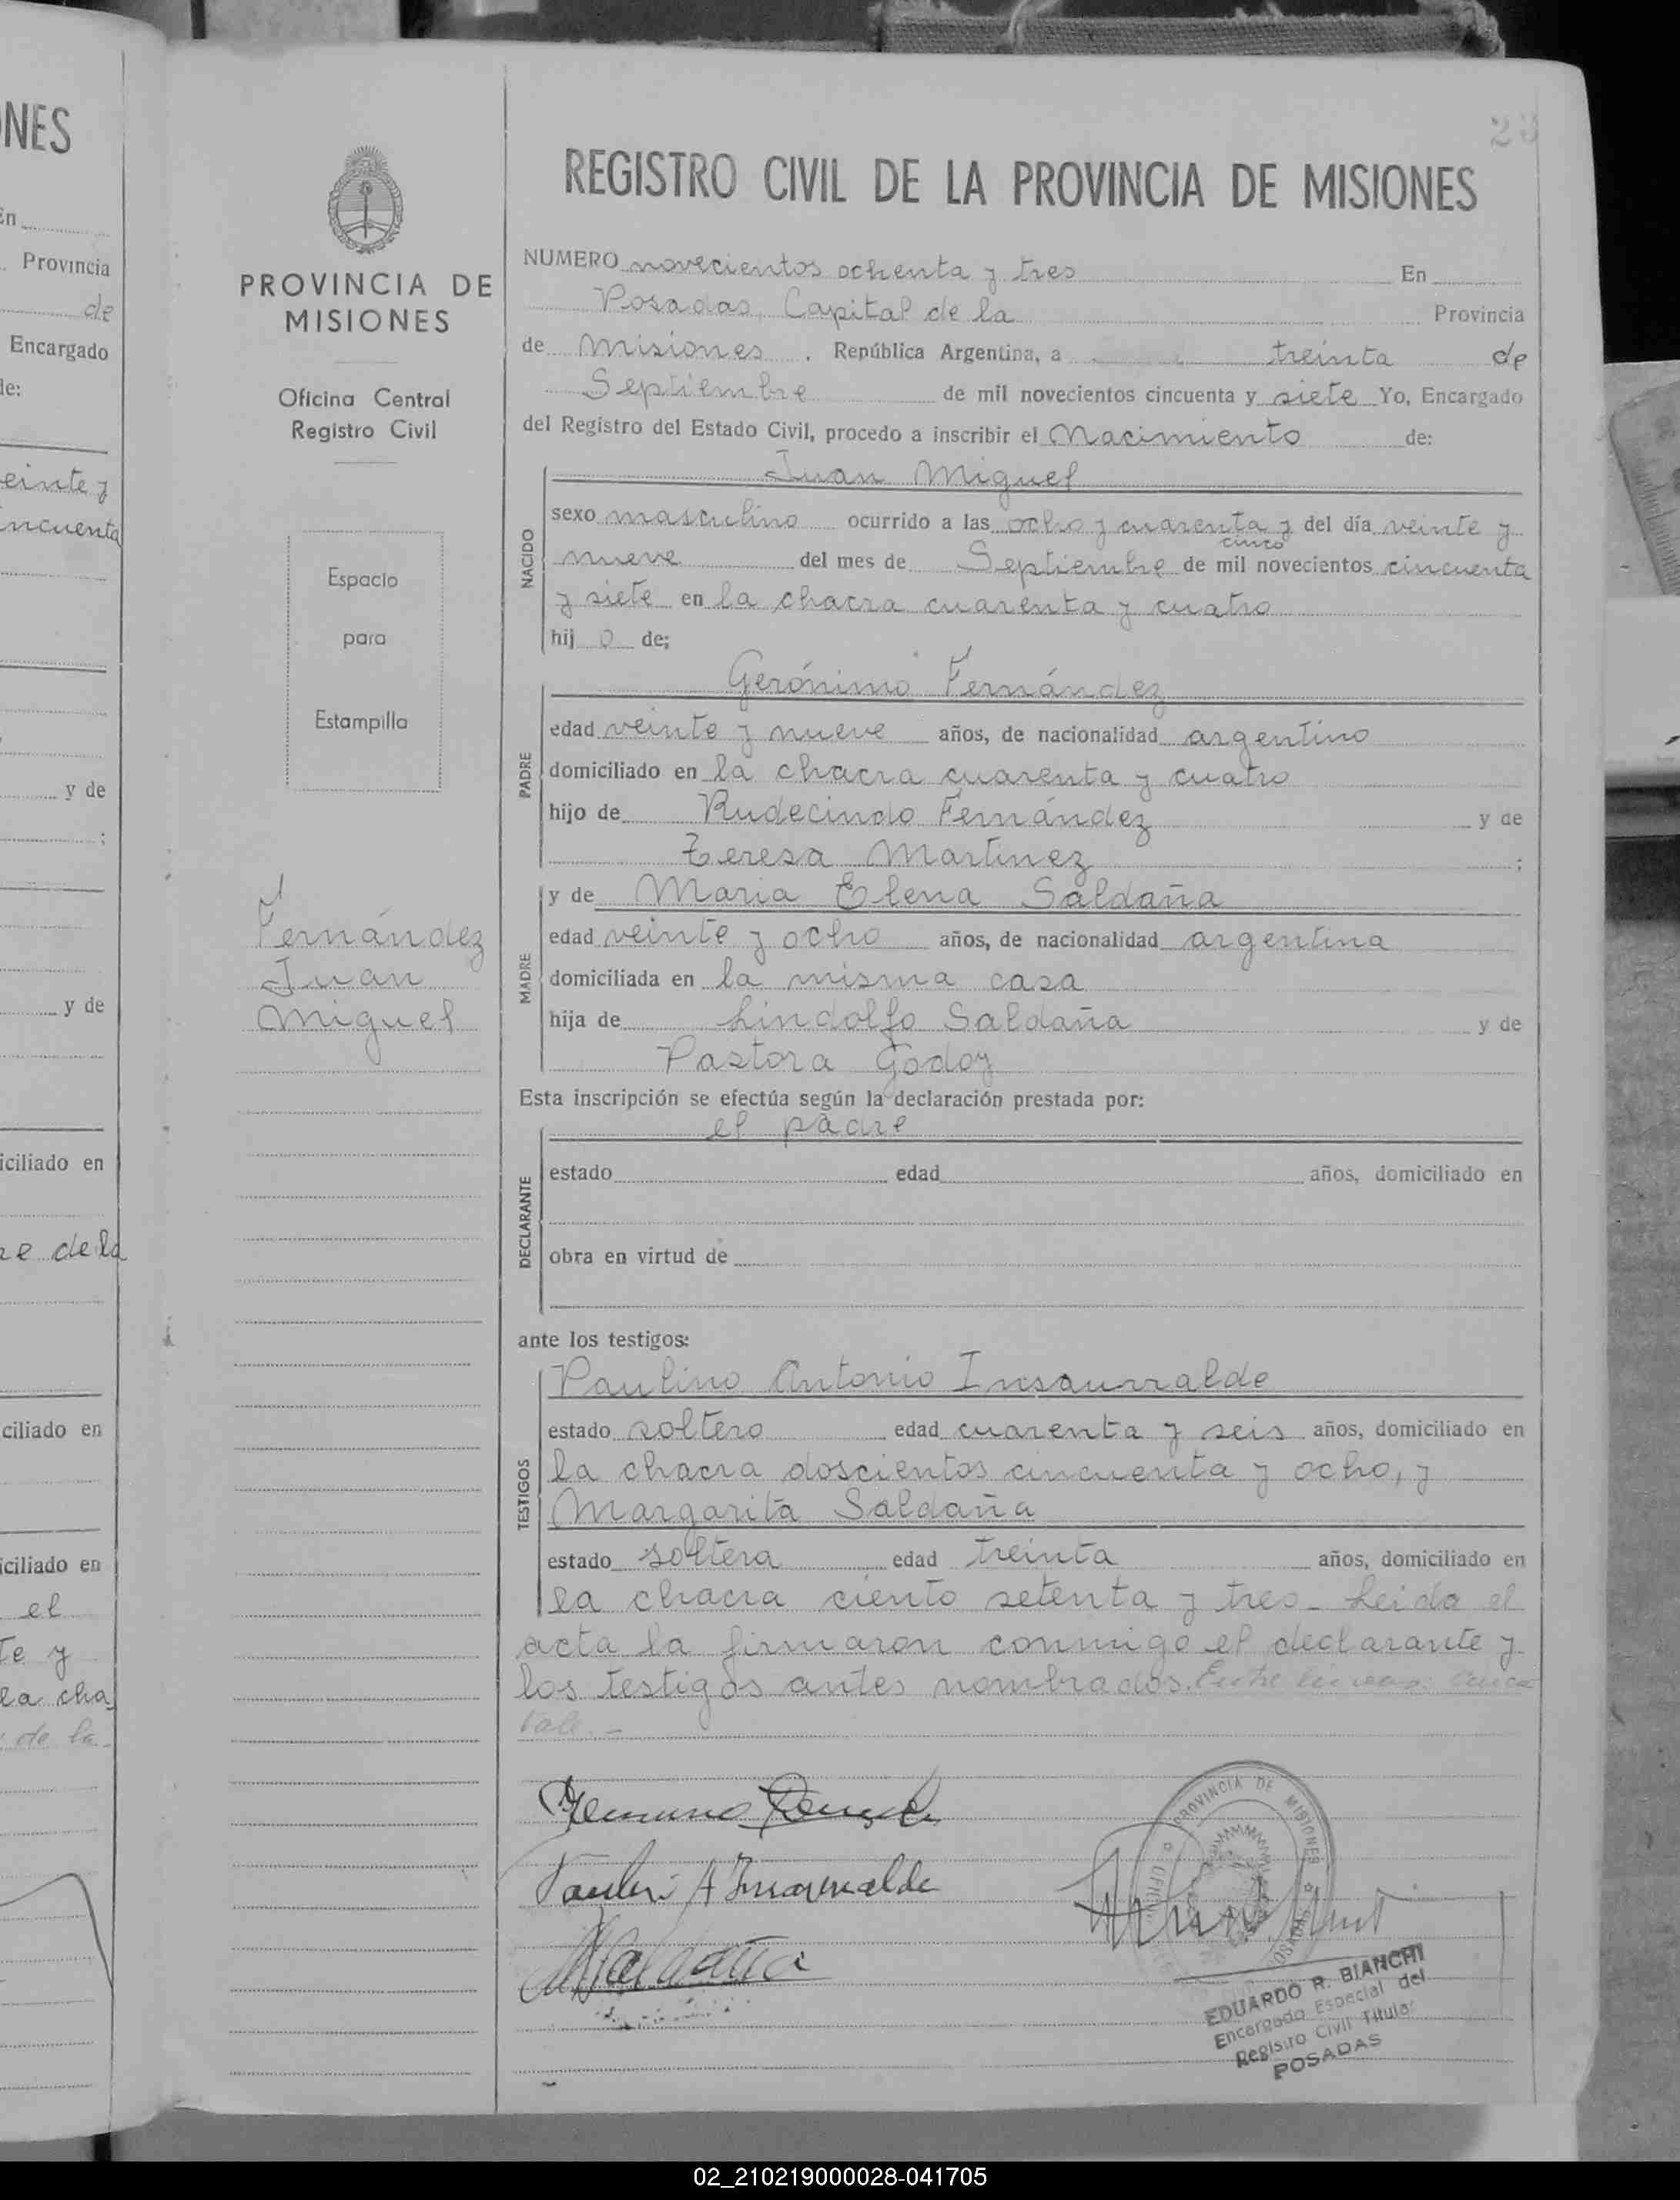 NES
En
Provincia
de
Encargado
de:
einte y
incuenta
y de
;
y de
iciliado en
re de la
ciliado en
iciliado en
el
te y
la cha
y de la
PROVINCIA DE
MISIONES
Oficina Central
Registro Civil
Espacio
para
Estampilla
Fernández
Juan
Miguel
23
REGISTRO CIVIL DE LA PROVINCIA DE MISIONES
NUMERO novecientos ochenta y tres En
Posadas, Capital de la Provincia
de Misiones. República Argentina, a treinta de
Septiembre de mil novecientos cincuenta y siete Yo, Encargado
del Registro del Estado Civil, procedo a inscribir el Nacimiento de:
NACIDO
Juan Miguel
sexo masculino ocurrido a las ocho y cuarenta y del día veinte y
cinco
nueve del mes de Septiembre de mil novecientos cincuenta
y siete en la chacra cuarenta y cuatro
hij o de;
PADRE
Gerónimo Fernández
edad veinte y nueve años, de nacionalidad argentino
domiciliado en la chacra cuarenta y cuatro
hijo de Rudecindo Fernández y de
Teresa Martinez ;
MADRE
y de Maria Elena Saldaña
edad veinte y ocho años, de nacionalidad argentina
domiciliada en la misma casa
hija de Lindolfo Saldaña y de
Pastora Godoy
Esta inscripción se efectúa según la declaración prestada por:
DECLARANTE
el padre
estado edad años, domiciliado en
obra en virtud de
ante los testigos:
TESTIGOS
Paulino Antonio Insaurralde
estado soltero edad cuarenta y seis años, domiciliado en
la chacra doscientos cincuenta y ocho, y
Margarita Saldaña
estado soltera edad treinta años, domiciliado en
la chacra ciento setenta y tres - Leida el
acta la firmaron conmigo el declarante y
los testigos antes nombrados. Entre lineas: cinco
Vale. -
Paulin A Insaurralde
MSaldaña
PROVINCIA DE MISIONES
POSADAS
EDUARDO R. BIANCHI
Encargado Especial del
Registro Civil Titular
POSADAS
02_210219000028-041705